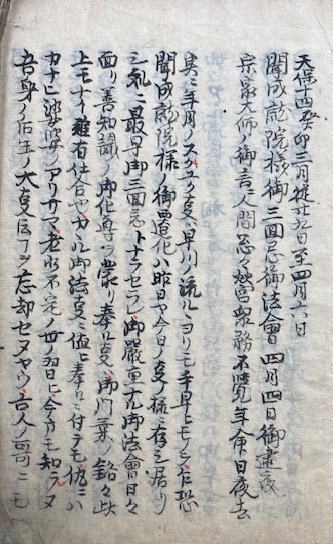 天保十四癸卯三月從廿九日至四月六日
聞成龍院様御三回忌御法會四月四日御逮夜
宗家大師ノ御言人間怱々營衆務不覺年命日夜去
実ニ年月ノスクル事早川ノ流ニヨリモ手早ヒモノシタ恐
聞成龍院様ノ御遷化ハ昨日ヤ今日ノ事ノ様ニ存シ居リ
シ処ニ最早御三回忌トナラセラレ御嚴重ナル御法會日々
面リ善知識ノ御化導ヲ蒙リ奉ル事御門葉ノ銘々此
上モナイ難有仕合セカヽル御法事ニ値ヒ奉ルニ付テモ仮ニハ
カナヒ娑婆ノアリサマ老少不定ノ世ノ習ヒ今ヲモ知ラヌ
吾身ノ後生ノ大事ヲ忘却セヌヤウ古人ノ哥ニモ